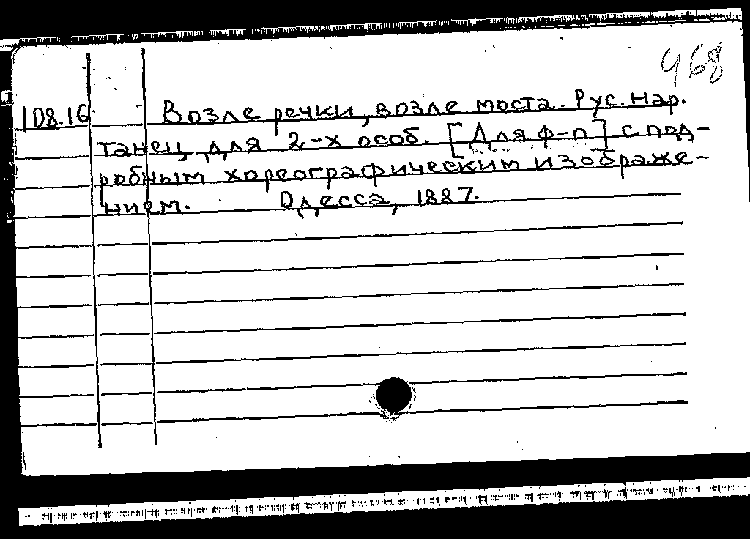 468
108.16 Возле речки, возле моста. Рус. нар.
танец для 2-х особ. [Для ф-п] с под-
робным хореографическим изображе-
нием. Одесса, 1887.